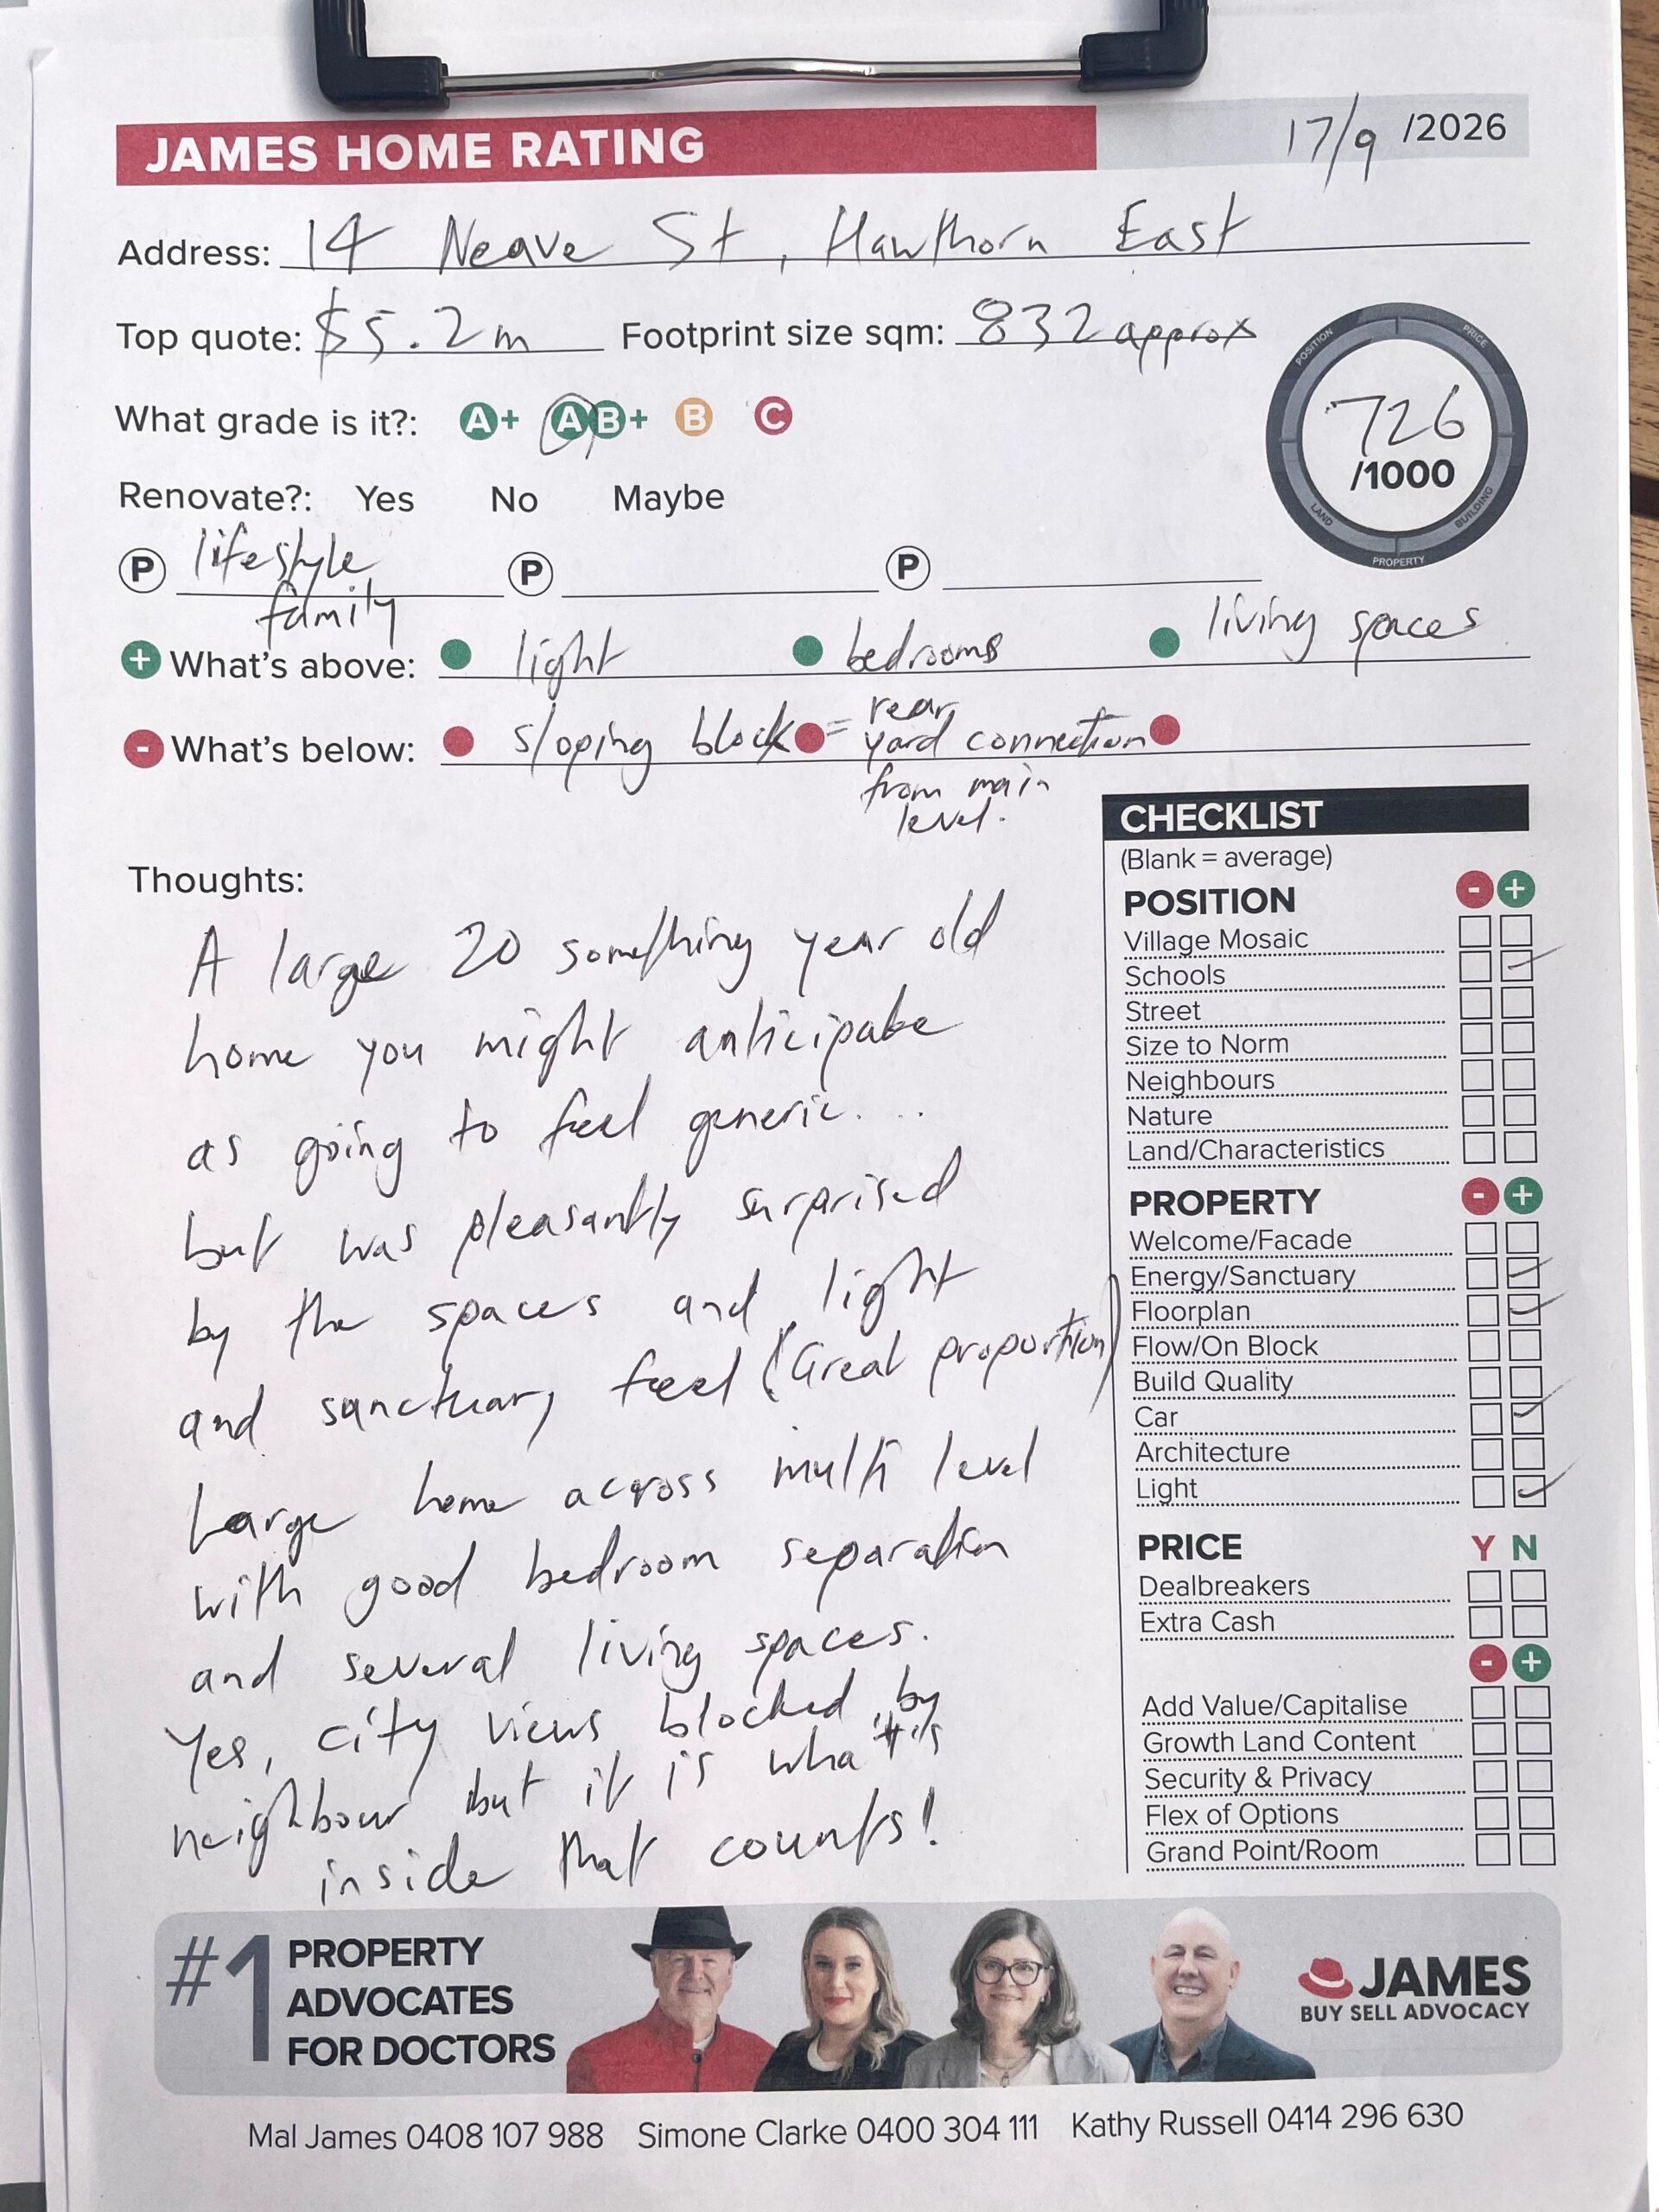 JAMES HOME RATING 17/9 /2026
Address: 14 Neave St, Hawthorn East
Top quote: $5.2m Footprint size sqm: 832 approx
POSITION PRICE LAND BUILDING PROPERTY
726
/1000
What grade is it?: A+ A B+ B C
Renovate?: Yes No Maybe
P lifestyle P P
family
+ What's above: light bedrooms living spaces
- What's below: sloping block = rear
yard connection
from main
level.
Thoughts:
A large 20 something year old
home you might anticipate
as going to feel generic...
but was pleasantly surprised
by the spaces and light
and sanctuary feel (Great proportion)
Large home across multi level
with good bedroom separation
and several living spaces.
Yes, city views blocked by
neighbour but it is what it's
inside that counts!
CHECKLIST
(Blank = average)
POSITION - +
Village Mosaic
Schools
Street
Size to Norm
Neighbours
Nature
Land/Characteristics
PROPERTY - +
Welcome/Facade
Energy/Sanctuary
Floorplan
Flow/On Block
Build Quality
Car
Architecture
Light
PRICE Y N
Dealbreakers
Extra Cash
- +
Add Value/Capitalise
Growth Land Content
Security & Privacy
Flex of Options
Grand Point/Room
#1 PROPERTY
ADVOCATES
FOR DOCTORS
JAMES
BUY SELL ADVOCACY
Mal James 0408 107 988 Simone Clarke 0400 304 111 Kathy Russell 0414 296 630